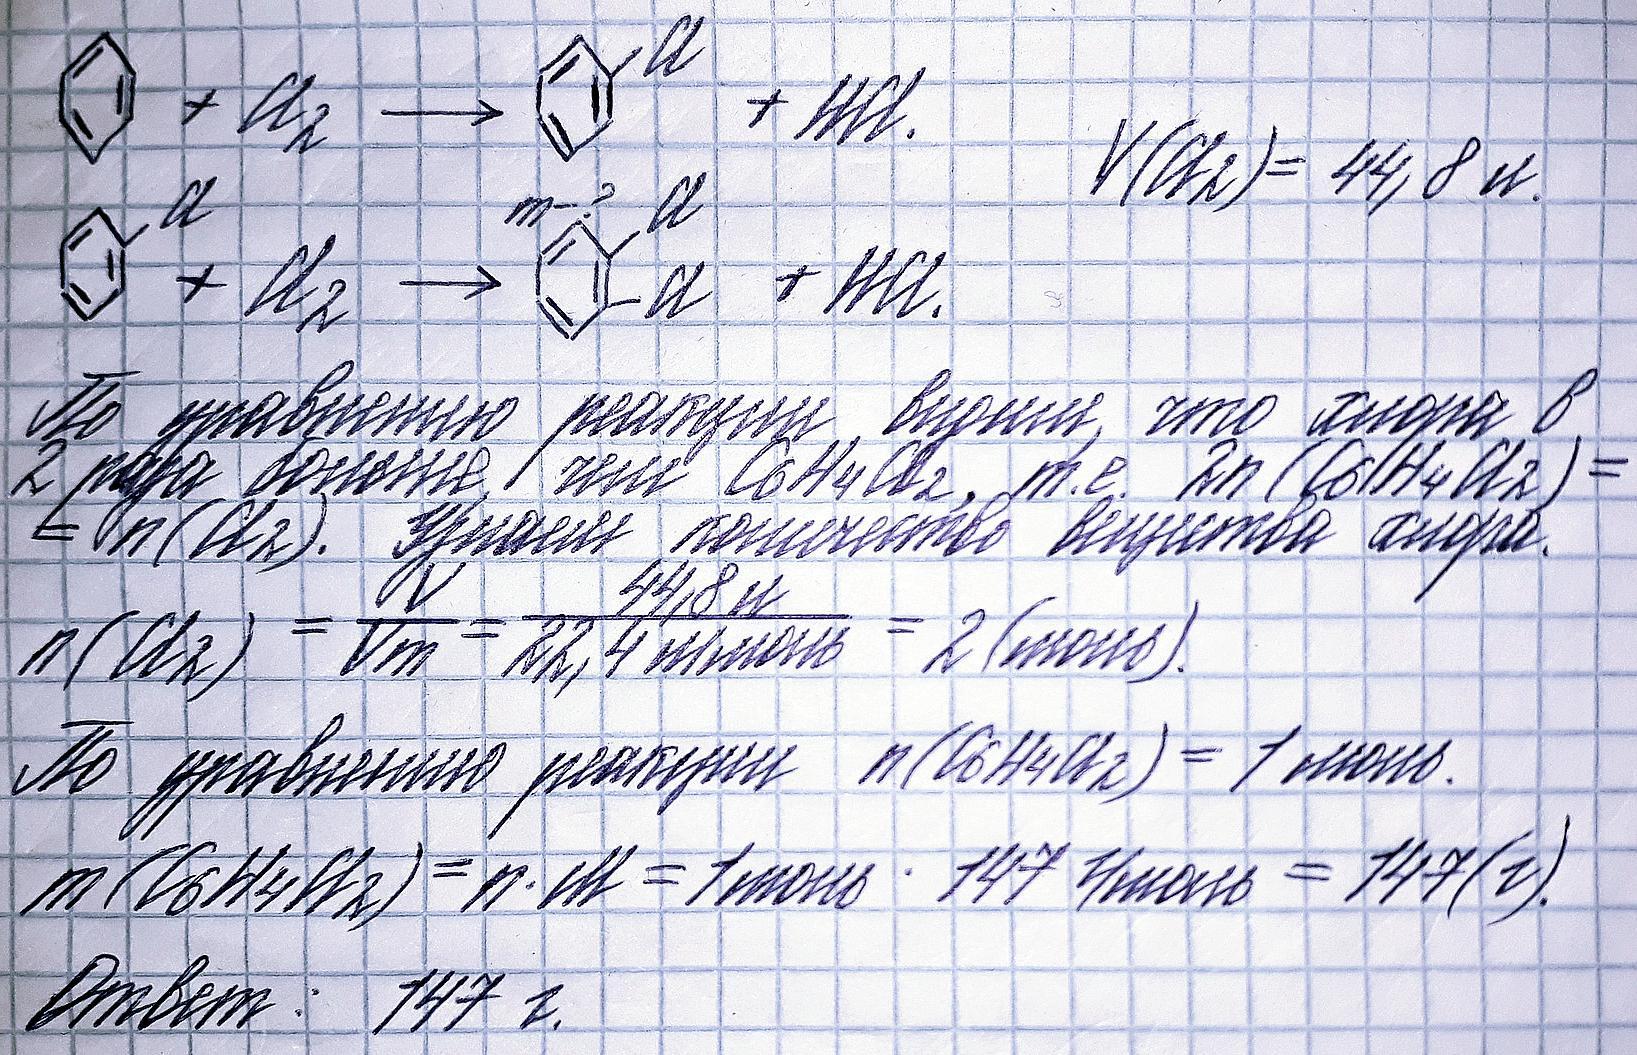 + Cl2 → Cl + HCl.
V(Cl2) = 44,8 л.
Cl + Cl2 → m-? Cl Cl + HCl.
По уравнению реакции видим, что хлора в
2 раза больше, чем C6H4Cl2, т.е. 2n(C6H4Cl2) =
= n(Cl2). Узнаем количество вещества хлора.
n(Cl2) = V/Vm = 44,8 л/22,4 л/моль = 2 (моль).
По уравнению реакции n(C6H4Cl2) = 1 моль.
m(C6H4Cl2) = n·M = 1 моль · 147 г/моль = 147 (г).
Ответ: 147 г.